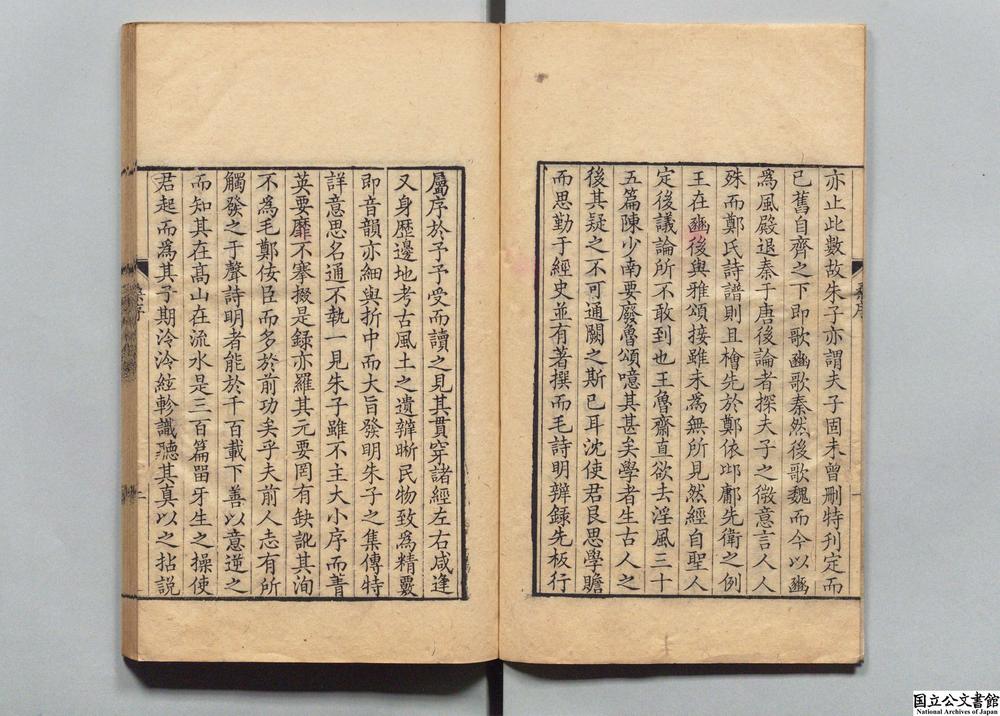 亦止此數故朱子亦謂夫子固未曾刪特刊定而
已舊自齊之下即歌豳歌秦然後歌魏而今以豳
為風殿退秦于唐後論者探夫子之微意言人人
殊而鄭氏詩譜則且檜先於鄭依邶鄘先衛之例
王在豳後與雅頌接雖未為無所見然經自聖人
定後議論所不敢到也王魯齋直欲去淫風三十
五篇陳少南要廢魯頌噫其甚矣學者生古人之
後其疑之不可通闕之斯已耳沈使君艮思學贍
而思勤于經史並有著撰而毛詩明辨録先板行
屬序於予予受而讀之見其貫穿諸經左右咸逢
又身歷邊地考古風土之遺辨晰民物致為精覈
即音韻亦細與折中而大旨發明朱子之集傳特
詳意思名通不執一見朱子雖不主大小序而菁
英要靡不搴掇是録亦羅其元要罔有缺訛其洵
不為毛鄭佞臣而多於前功矣乎夫前人志有所
觸發之于聲詩明者能於千百載下善以意逆之
而知其在髙山在流水是三百篇畱牙生之操使
君起而為其子期泠泠絃軫識聽其真以之拈説
序
一
序
二
国立公文書館
National Archives of Japan